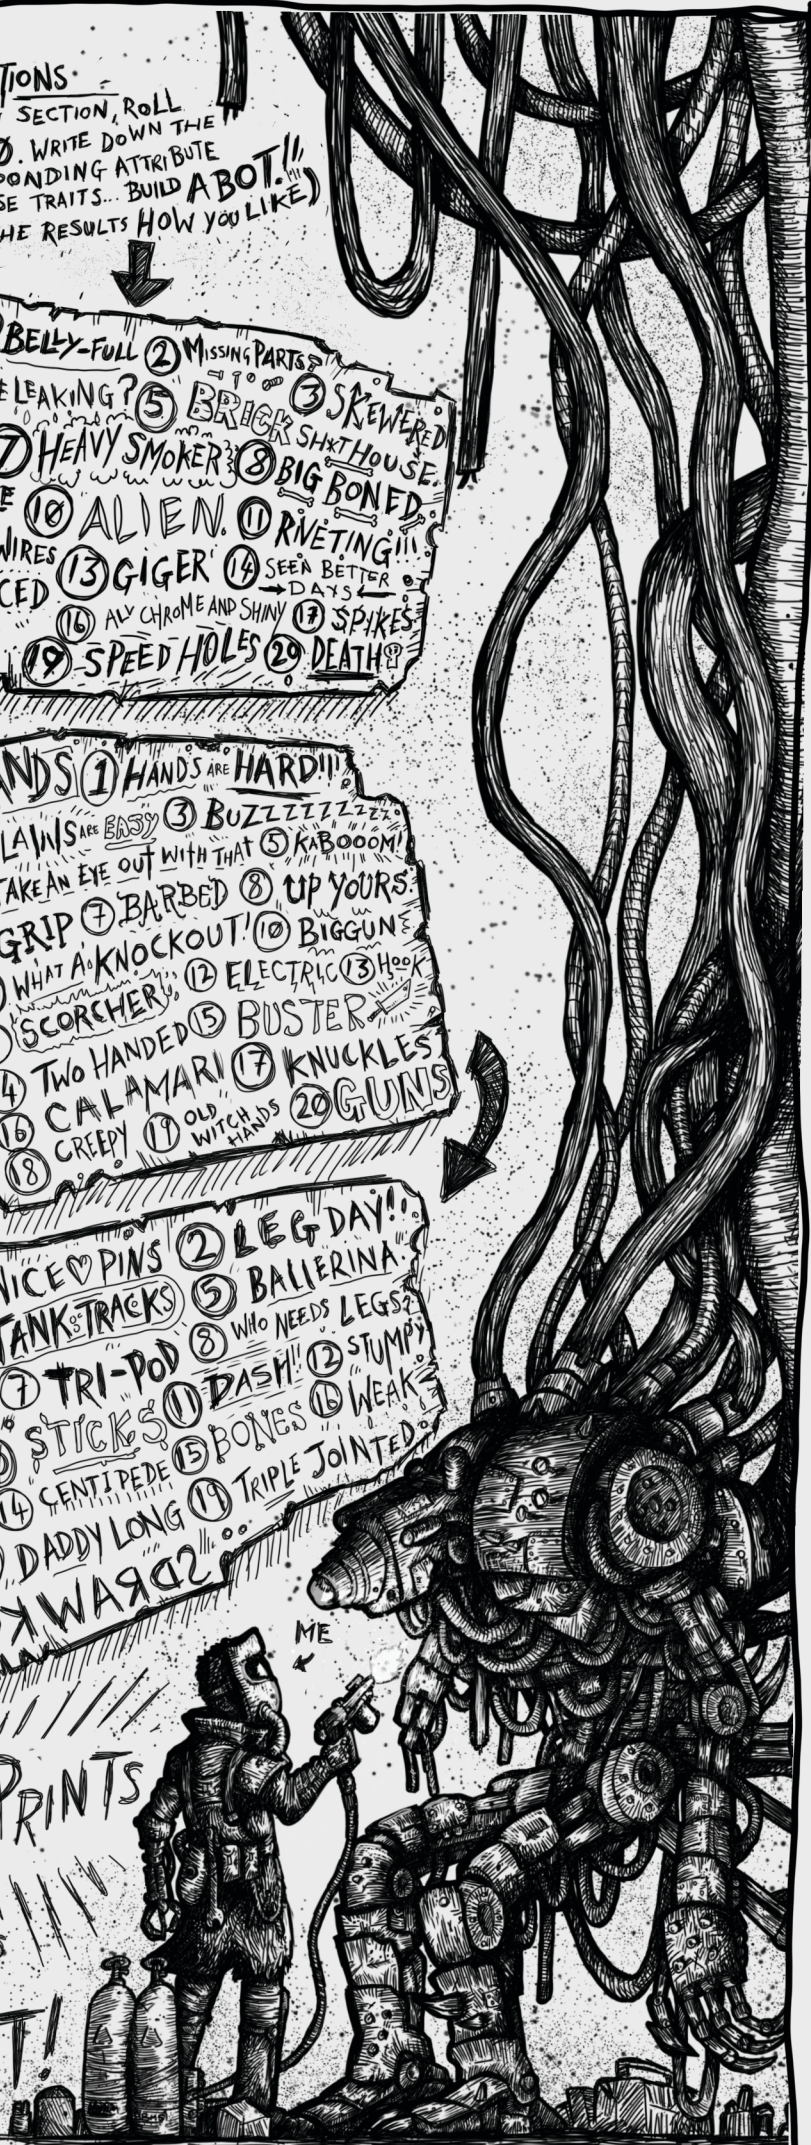 TIONS
SECTION, ROLL
0. WRITE DOWN THE
PONDING ATTRIBUTE
SE TRAITS... BUILD A BOT!!!
HE RESULTS HOW YOU LIKE)
BELLY-FULL 2 MISSING PARTS?
LEAKING? 5 BRICK SH*THOUSE. 3 SKEWERED
7 HEAVY SMOKER 8 BIG BONED
10 ALIEN. 11 RIVETING!!!
WIRES 13 GIGER 14 SEEN BETTER DAYS
CED 16 ALL CHROME AND SHINY 17 SPIKES
19 SPEED HOLES 20 DEATH
ANDS 1 HANDS ARE HARD!!!
LAWS ARE EASY 3 BUZZZZZZZZZ
TAKE AN EYE OUT WITH THAT 5 KABOOOM!
GRIP 7 BARBED 8 UP YOURS.
WHAT A KNOCKOUT! 10 BIGGUN
SCORCHER 12 ELECTRIC 13 HOOK
14 TWO HANDED 15 BUSTER
16 CALAMARI 17 KNUCKLES
18 CREEPY 19 OLD WITCH HANDS 20 GUNS
NICE ♡ PINS 2 LEG DAY!!
TANK TRACKS 5 BALLERINA
7 TRI-POD 8 WHO NEEDS LEGS?
STICKS 11 DASH!! 12 STUMPY
14 CENTIPEDE 15 BONES 16 WEAK
DADDY LONG 19 TRIPLE JOINTED
KWARDS
ME
PRINTS
T!